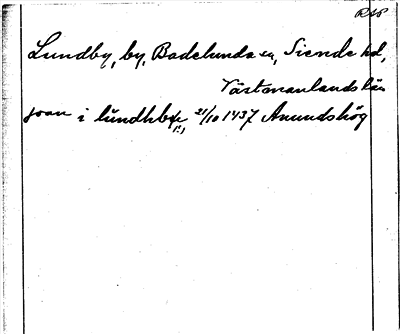 Lundby, by, Badelunda sn, Siende hd,
Västmanlands län
joan i lundhby 21/10 1437 Anundshög